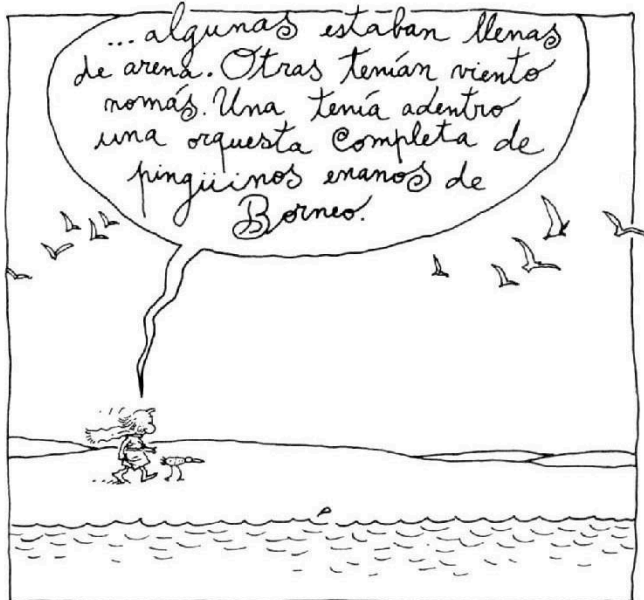 ... algunas estaban llenas
de arena. Otras tenían viento
nomás. Una tenía adentro
una orquesta completa de
pingüinos enanos de
Borneo.